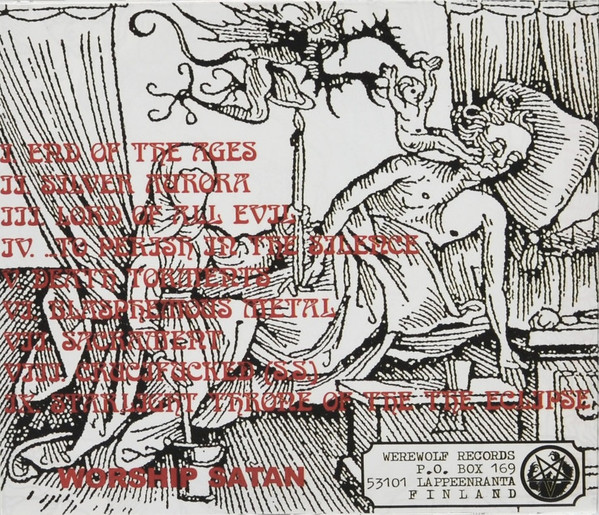 I. END OF THE AGES
II. SILVER AURORA
III. LORD OF ALL EVIL
IV. ..TO PERISH IN THE SILENCE
V. DEATH TORMENTS
VI. BLASPHEMOUS METAL
VII. SACRAMENT
VIII. CRUCIFUCKED (S.S)
IX. STARLIGHT THRONE OF THE THE ECLIPSE
WORSHIP SATAN
WEREWOLF RECORDS
P.O. BOX 169
53101 LAPPEENRANTA
FINLAND